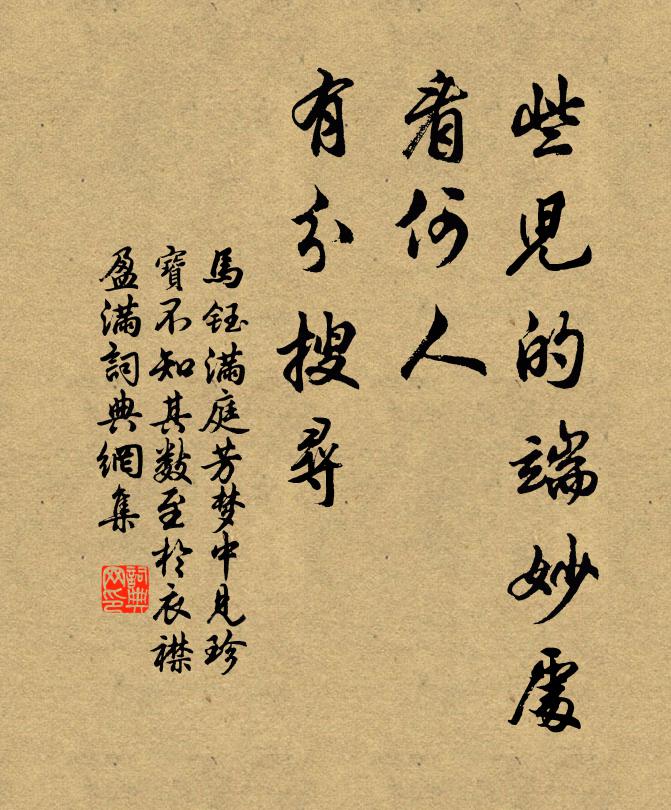 些兒的端妙處
看何人
有分搜尋
馬鈺滿庭芳梦中見珍
寶不知其数至於衣襟
盈滿詞典網集
詞典网印